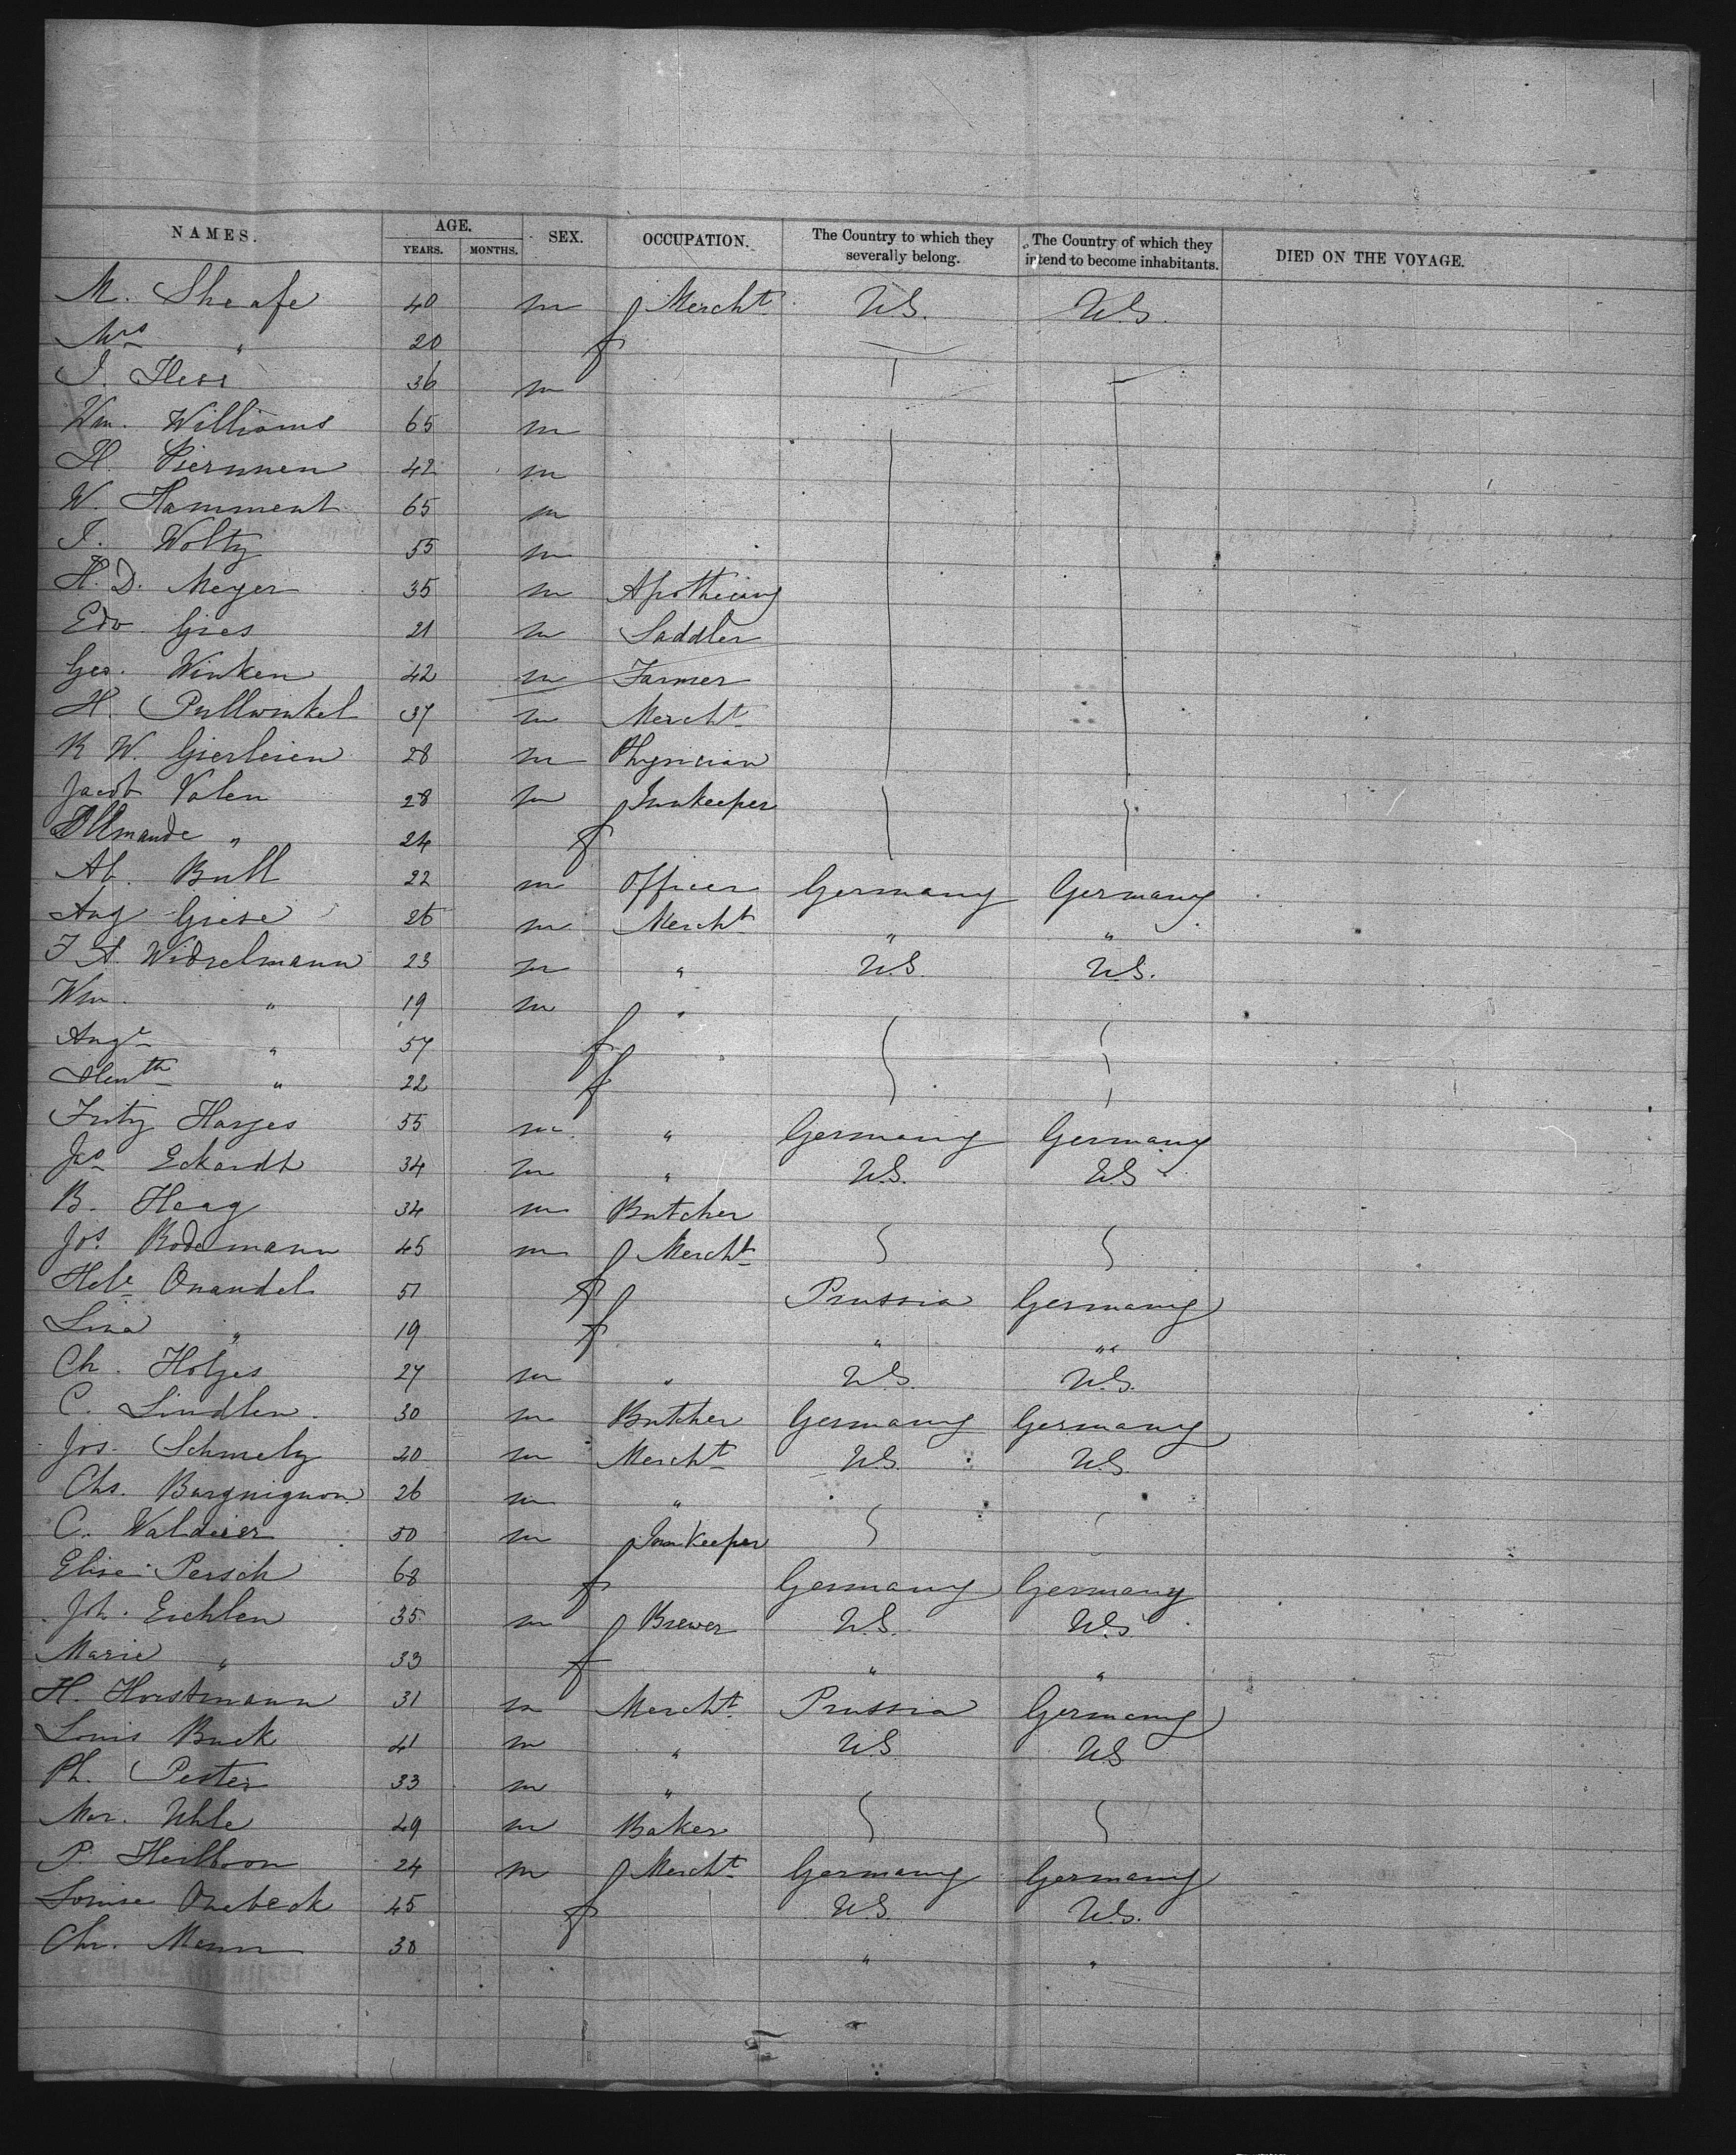 NAMES. AGE. YEARS. MONTHS. SEX. OCCUPATION. The Country to which they severally belong. The Country of which they intend to become inhabitants. DIED ON THE VOYAGE.
M. Sheafe 40 m Mercht U.S. U.S.
Mrs " 20 f
J. Hess 36 m
Wm. Williams 65 m
H. Piermmen 42 m
W. Hamment 65 m
J. Woltz 55 m
H. D. Meyer 35 m Apothecary
Edw Gies 21 m Saddler
Geo. Winken 42 m Farmer
H. Pullwinkel 37 m Mercht
R W. Gierleien 28 m Physician
Jacob Valen 28 m Innkeeper
" 24 f
Ab. Bull 22 m Officer Germany Germany
Aug Giese 26 m Mercht " "
J A. Widzelmann 23 m " U.S. U.S.
Wm. " 19 m "
Auge " 57 f
" 22 f
Fritz Harjes 55 m " Germany Germany
Jas Eckardt 34 m " U.S. U.S
B. Haag 34 m Butcher
Jos. Rodemann 45 m Mercht
Hele Quandel 51 f Prussia Germany
Lina " 19 f " "
Ch. Holjes 27 m " U.S. U.S.
C. Lindlen 30 m Butcher Germany Germany
Jos. Schmelz 20 m Mercht U.S. U.S.
Chs. Burgnignon 26 m "
C. Waldeier 50 m Innkeeper
Elise Persch 68 f Germany Germany
Joh. Eichlen 35 m Brewer U.S. U.S.
Marie " 33 f " "
H. Horstmann 31 m Mercht Prussia Germany
Louis Buck 41 m " U.S U.S
Ph. Pester 33 m "
Mor. Uhle 49 m Baker
P. Heilbron 24 m Mercht Germany Germany
Louise Onebeck 45 f U.S. U.S.
Chr. Mann 30 " "